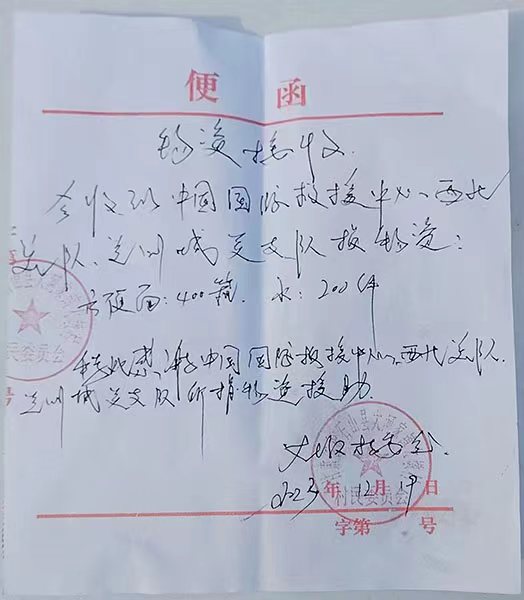 便 函
物资接收
今收到中国国际救援中心、西北
总队、兰州城关支队捐物资:
方便面:400箱. 水:200件
特此感谢中国国际救援中心、西北总队.
兰州城关支队所捐物资援助.
村委会.
2023年12月19日
字第 号
石山县大河家镇
村民委员会
山县大河家
民委员会